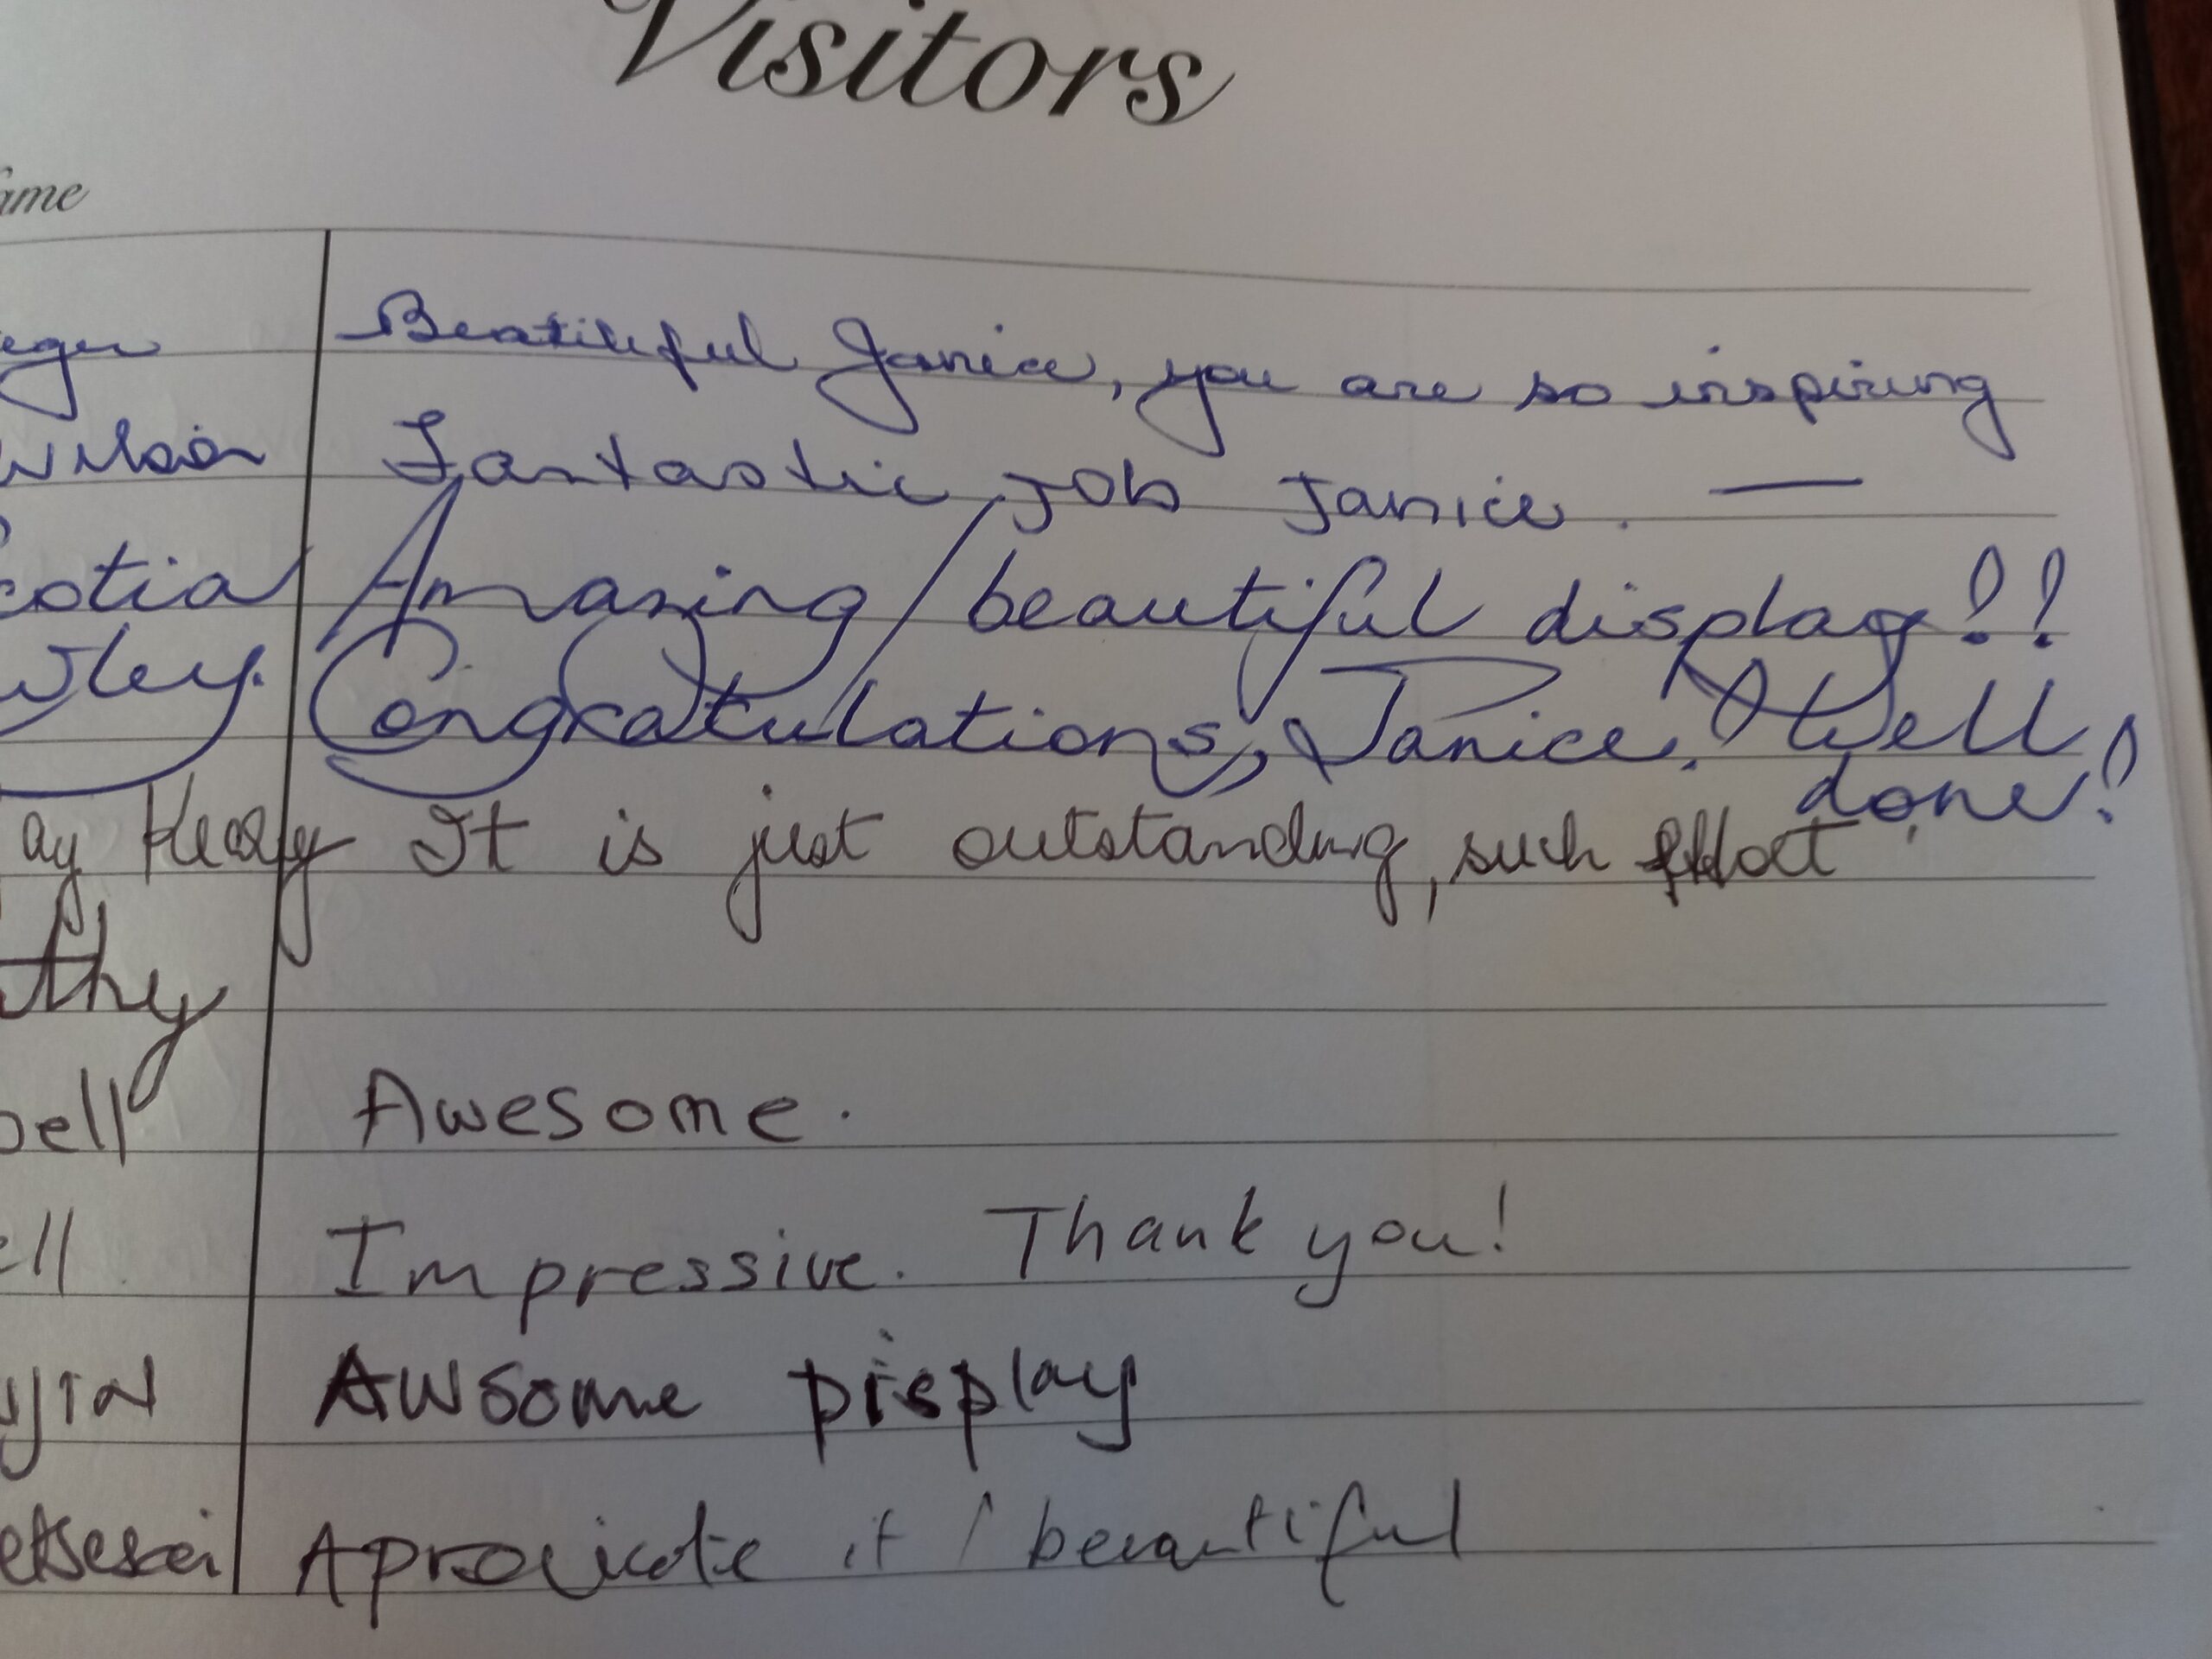 Visitors
ame
eger Beatileful Janice, you are so inspiring
Wilson Fantastic Job Janice. —
cotia Amazing / beautiful display!!
wley. Congratulations, Janice. Well
done!
ay Kealy It is just outstanding, such effort
thy
bell Awesome.
ell Impressive. Thank you!
yjIN AWSome Display
etsesei Aproiicate it / beautiful